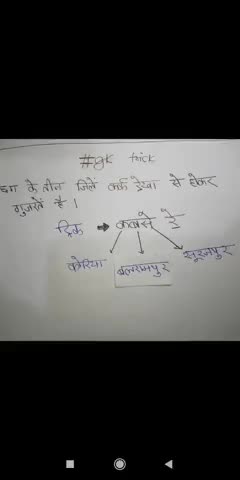 #gk trick
छग के तीन जिले कर्क रेखा से होकर
गुजरते है ।
ट्रिक → कबसे रे
कोरिया बलरामपुर सूरजपुर